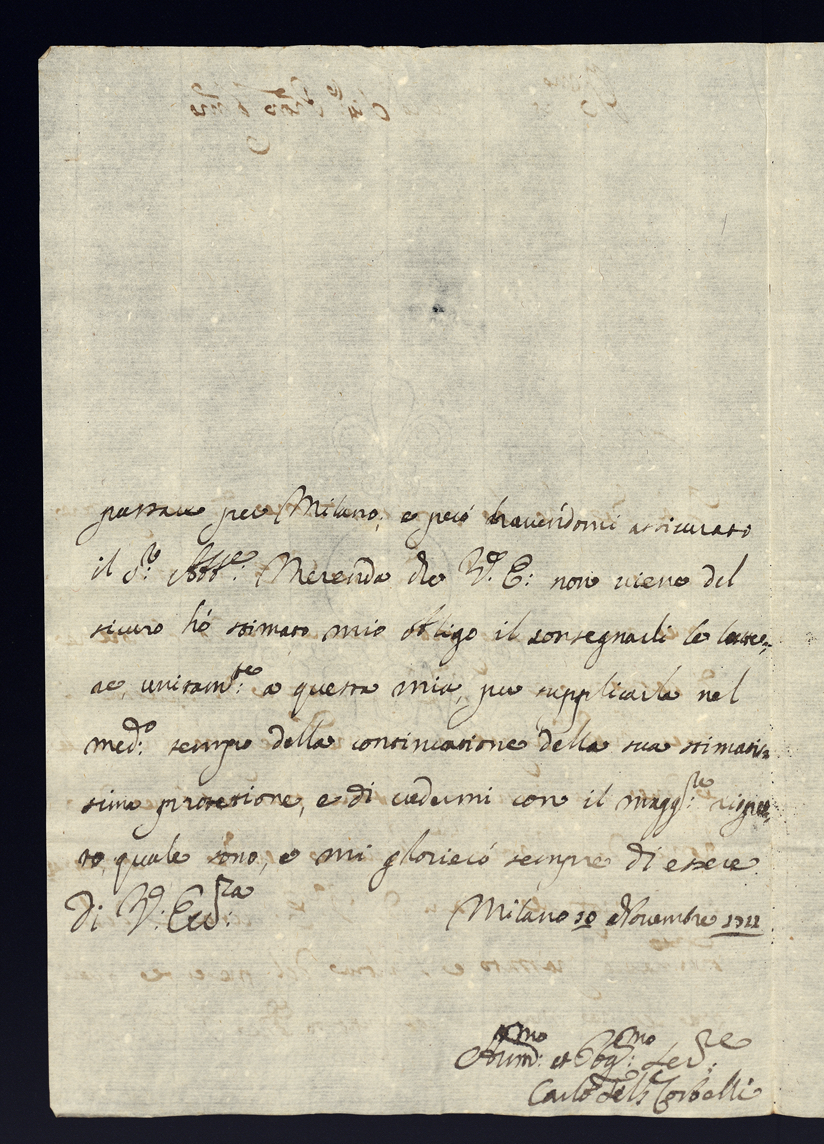 passare per Milano, e però havendomi assicurato
il S.re Abb.e Merenda che V. E: non viene del
sicuro hò stimato mio obligo il consegnarli le lette,
re, unitam.te a questa mia, per supplicarla nel
med.o tempo della continuatione della sua stimatis,
sima protetione, e di credermi con il magg.re rispet,
to, quale sono, e mi glorierò sempre di essere
Di V: Ecc.za Milano 10 Novembre 1711
Hum.mo et Obg.mo Ser.re
Carlo